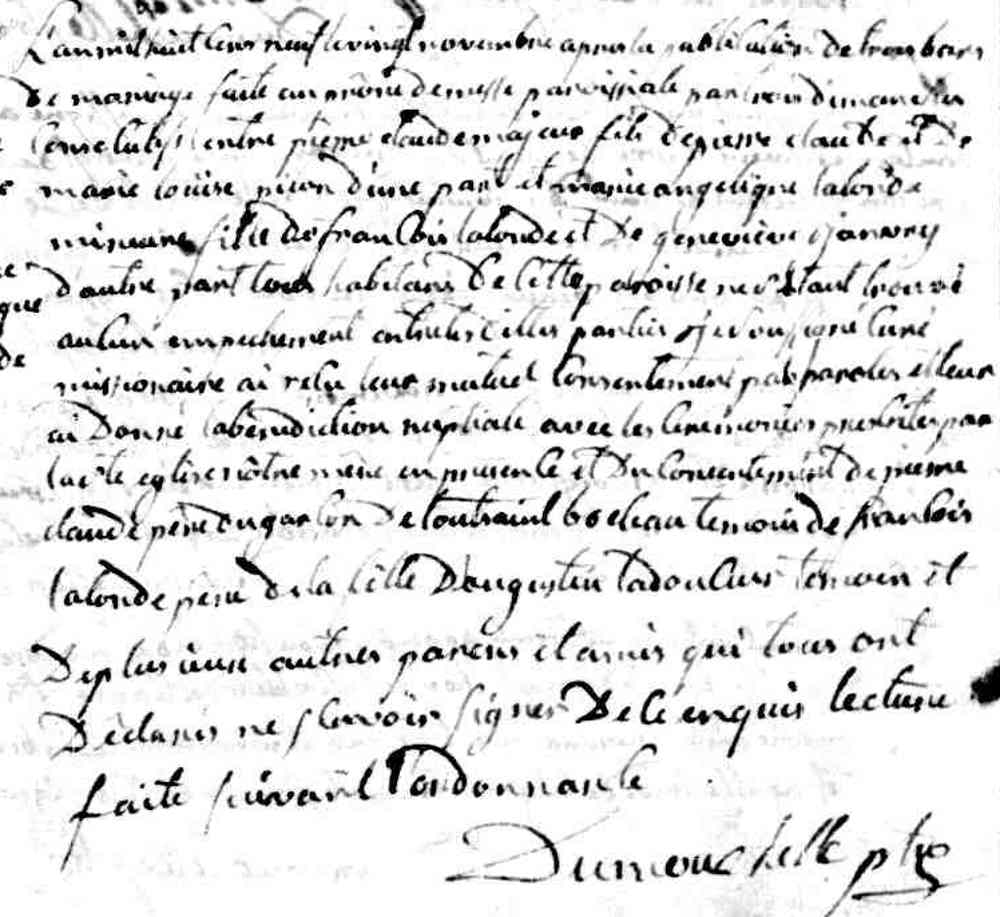 L'an mil huit cens neuf le vingt novembre après la publication de trois bans
De mariage faite au prône de messe paroissiale par trois dimanches
consecutifs entre pierre claude majeur fils de pierre claude et De
marie louise d'une part et marie angelique lalonde
mineure fille De francois lalonde et De genevieve janvry
d'autre part tous habitans De cette paroisse ne s'etant trouvé
aucun empechement entre les dittes parties je soussigné curé
missionaire ai reçu leur mutuel consentement par paroles et leur
ai Donné la bénédiction nuptiale avec les ceremonies prescrites par
la ste eglise nôtre mère en presence et Du consentement de pierre
claude père du garçon De toussaint bocheau temoin de francois
lalonde père de la fille D'augustin ladouceur temoin et
De plusieurs autres parens et amis qui tous ont
Déclarés ne scavoir signer De ce enquis lecture
faite suivant l'ordonnance
Dumouchelle ptre